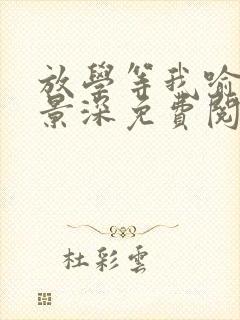 放學等我喻
景深免費閱
杜彩雲